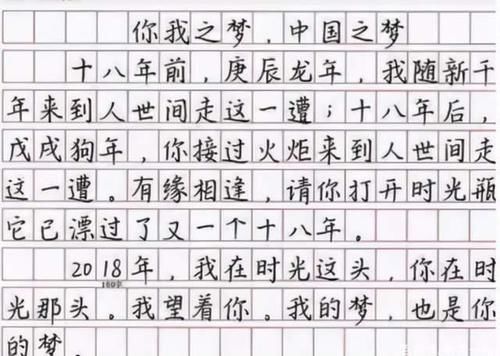 你我之梦，中国之梦
十八年前，庚辰龙年，我随新千
年来到人世间走这一遭；十八年后，
戊戌狗年，你接过火炬来到人世间走
这一遭。有缘相逢，请你打开时光瓶
它已漂过了又一个十八年。
2018年，我在时光这头，你在时
160字
光那头。我望着你。我的梦，也是你
的梦。